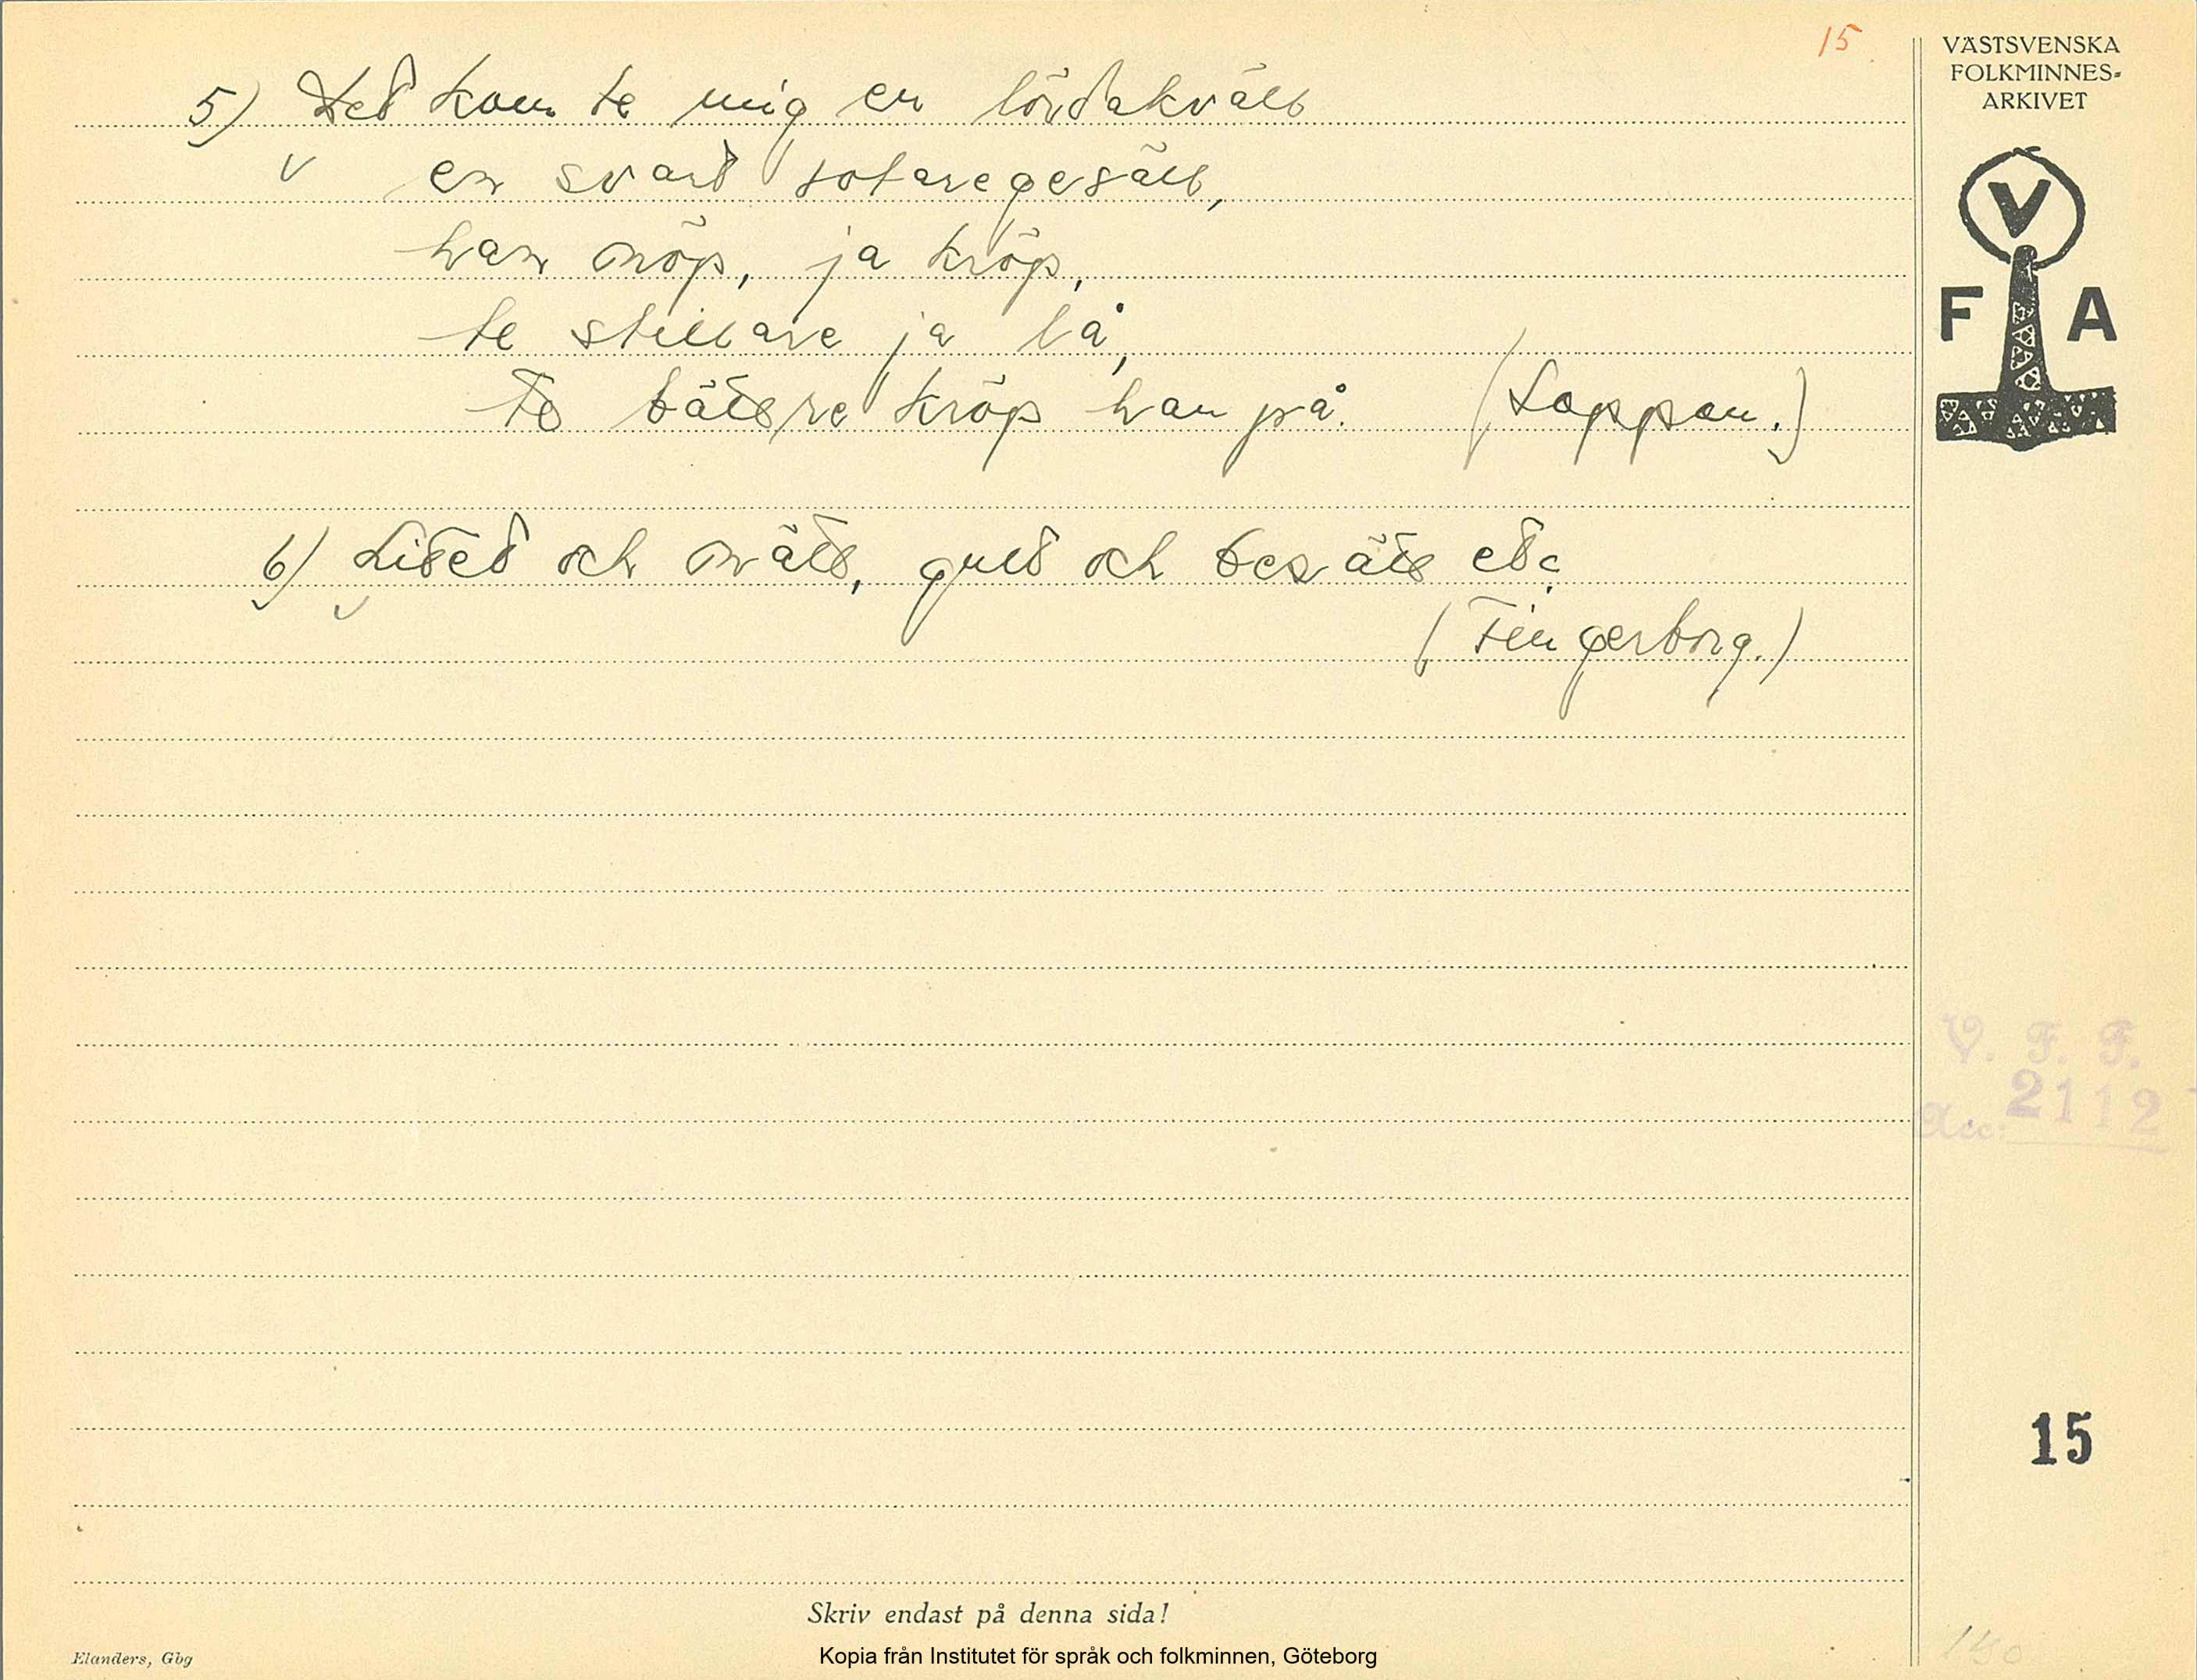 15
VÄSTSVENSKA
FOLKMINNES-
ARKIVET
V
F A
5) Det kom te mig en lördakväll
en svart sotaregesäll,
han nöp, ja kröp,
te stillare ja lå,
te bättre kröp han på. (Loppan.)
6) Litet och nätt, gult och besätt etc.
(Fingerborg.)
V. F. F.
Acc. 2112
15
Skriv endast på denna sida!
Elanders, Gbg
Kopia från Institutet för språk och folkminnen, Göteborg